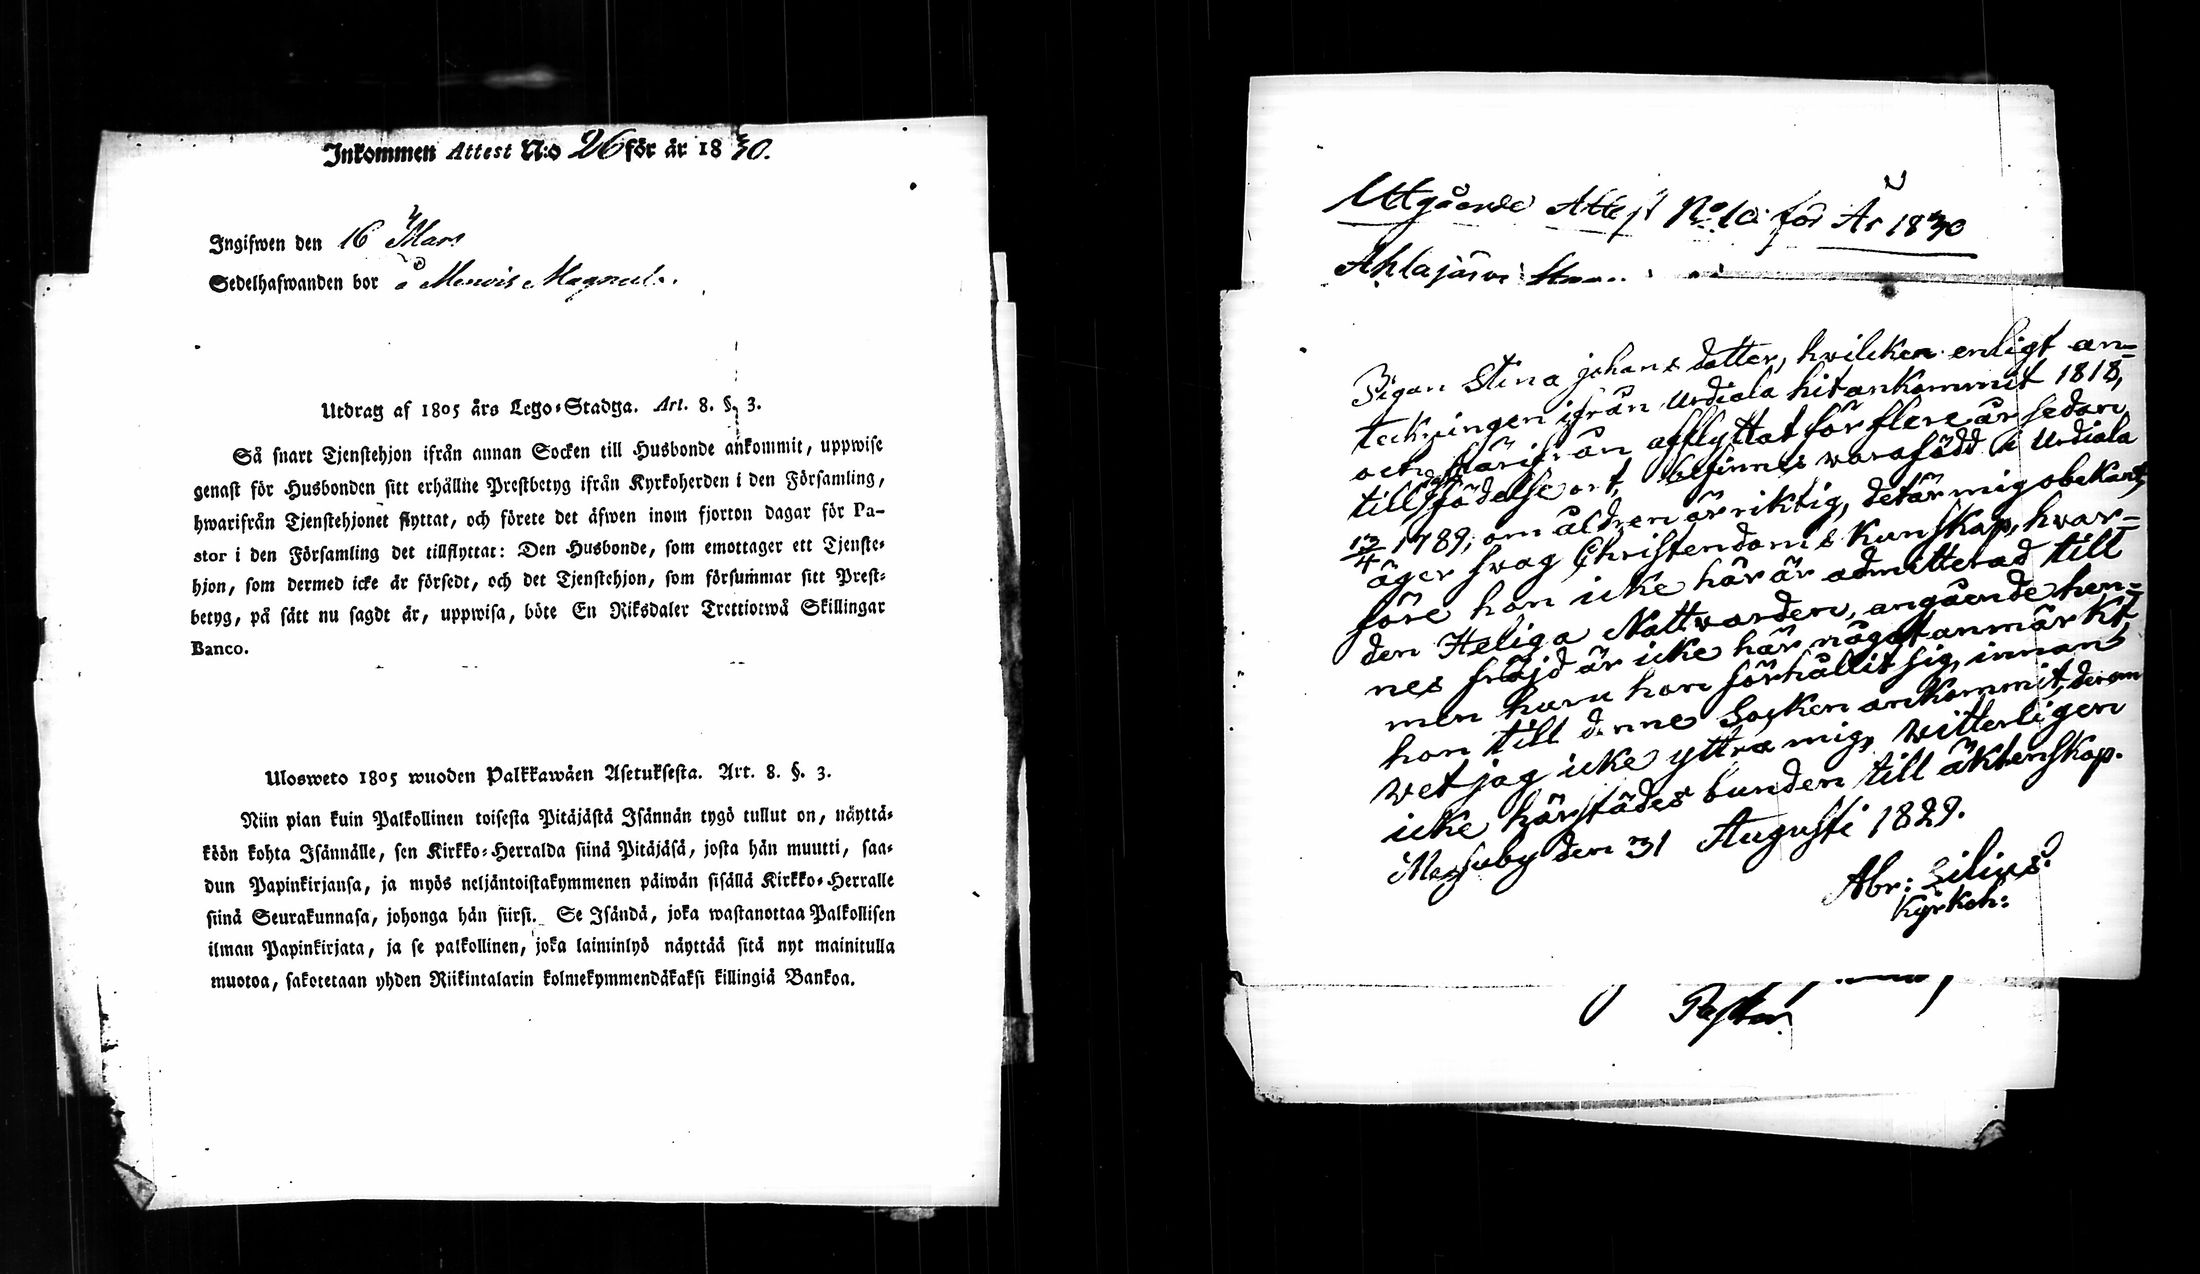 Inkommen Attest N:o 26 för år 1830.
Ingifwen den 16 Mars
Sedelhafwanden bor å Menois Magnula.
Utdrag af 1805 års Lego-Stadga. Art. 8. §. 3.
Så snart Tjenstehjon ifrån annan Socken till Husbonde ankommit, uppwise
genast för Husbonden sitt erhållne Prestbetyg ifrån Kyrkoherden i den Församling,
hwarifrån Tjenstehjonet flyttat, och förete det äfwen inom fjorton dagar för Pa-
stor i den Församling det tillflyttat: Den Husbonde, som emottager ett Tjenste-
hjon, som dermed icke är försedt, och det Tjenstehjon, som försummar sitt Prest-
betyg, på sätt nu sagdt är, uppwisa, böte En Riksdaler Trettiotwå Skillingar
Banco.
Ulosweto 1805 wuoden Palkkawäen Asetuksesta. Art. 8. §. 3.
Niin pian kuin Palkollinen toisesta Pitäjästä Isännän tygö tullut on, näyttä-
köön kohta Isännälle, sen Kirkko-Herralda siinä Pitäjäsä, josta hän muutti, saa-
dun Papinkirjansa, ja myös neljäntoistakymmenen päiwän sisällä Kirkko-Herralle
siinä Seurakunnasa, johonga hän siirsi. Se Isändä, joka wastanottaa Palkollisen
ilman Papinkirjata, ja se palkollinen, joka laiminlyö näyttää sitä nyt mainitulla
muotoa, sakotetaan yhden Riikintalarin kolmekymmendäkaksi killingiä Bankoa.
Utgående Attest No 10 för År 1830
Ahlajärvi
Pigan Stina Johansdotter, hvilcken enligt an-
teckningen ifrån Urdiala hitankommit 1818,
och härifrån afflyttat för flere år sedan
till födelse ort, befinnes vara född i Urdiala
13/4 1789, om åldren är riktig, det är mig obekant,
äger svag Christendoms kunskap, hvar-
före hon icke här är admitterad till
den Heliga Nattvarden, angående hen-
nes fräjd är icke här något anmärkt,
men huru hon förhållit sig, innan
hon till denne Socken ankommit, derom
vet jag icke yttra mig, vitterligen
icke härstädes bunden till äktenskap.
Messuby den 31 Augusti 1829.
Abr: Lilius.
Kyrkoh:
Pastor